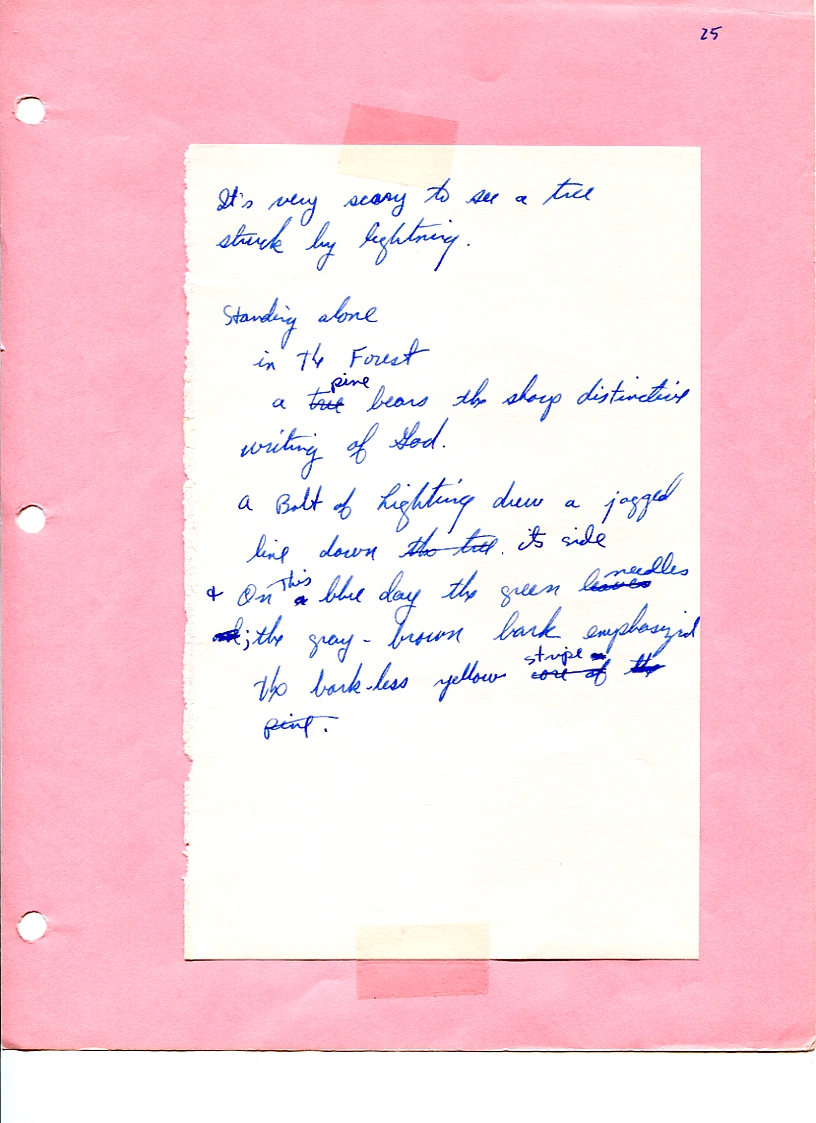 25
It's very scary to see a tree
struck by lightning.
Standing alone
in the Forest
pine
a tree bears the sharp distinctive
writing of God.
a Bolt of Lighting drew a jagged
line down the tree. its side
this needles
& On a blue day the green leaves
; the gray-brown bark emphasized
stripe
the bark-less yellow core of the
pine.